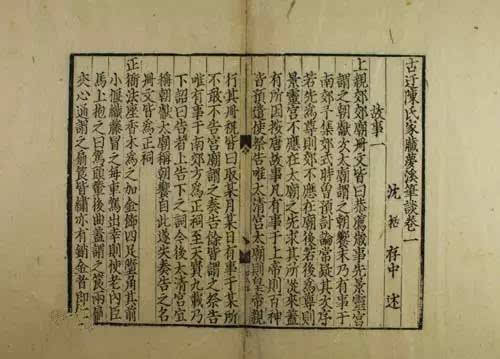 古迂陳氏家藏夢溪筆談卷一
沈括存中述
故事一
上親郊廟冊文皆曰恭薦歲事先景靈宮
謂之朝獻次太廟謂之朝饗末乃有事于
南郊予集郊式時曾預討論常疑其次序
若先為尊則不應在廟後若後為尊則
景靈宮不應在太廟之先求其所從來蓋
有所因按唐故事凡有事于上帝則百神
皆預遣使祭告唯太清宮太廟則皇帝親
行其冊祝皆曰取某月某日有事于某所
不敢不告宮廟謂之奏告餘皆謂之祭告
唯有事于南郊方為正祠至天寶九載乃
下詔曰告者上告下之詞今後太清宮宜
稱朝獻太廟稱朝饗自此遂失奏告之名
冊文皆為正祠
正衙法座香木為之加金飾四足墮角其前
小偃織藤冒之每車駕出幸則使老內臣
馬上抱之曰駕頭輦後曲蓋謂之筤兩扇
夾心通謂之扇筤皆繡亦有銷金者即